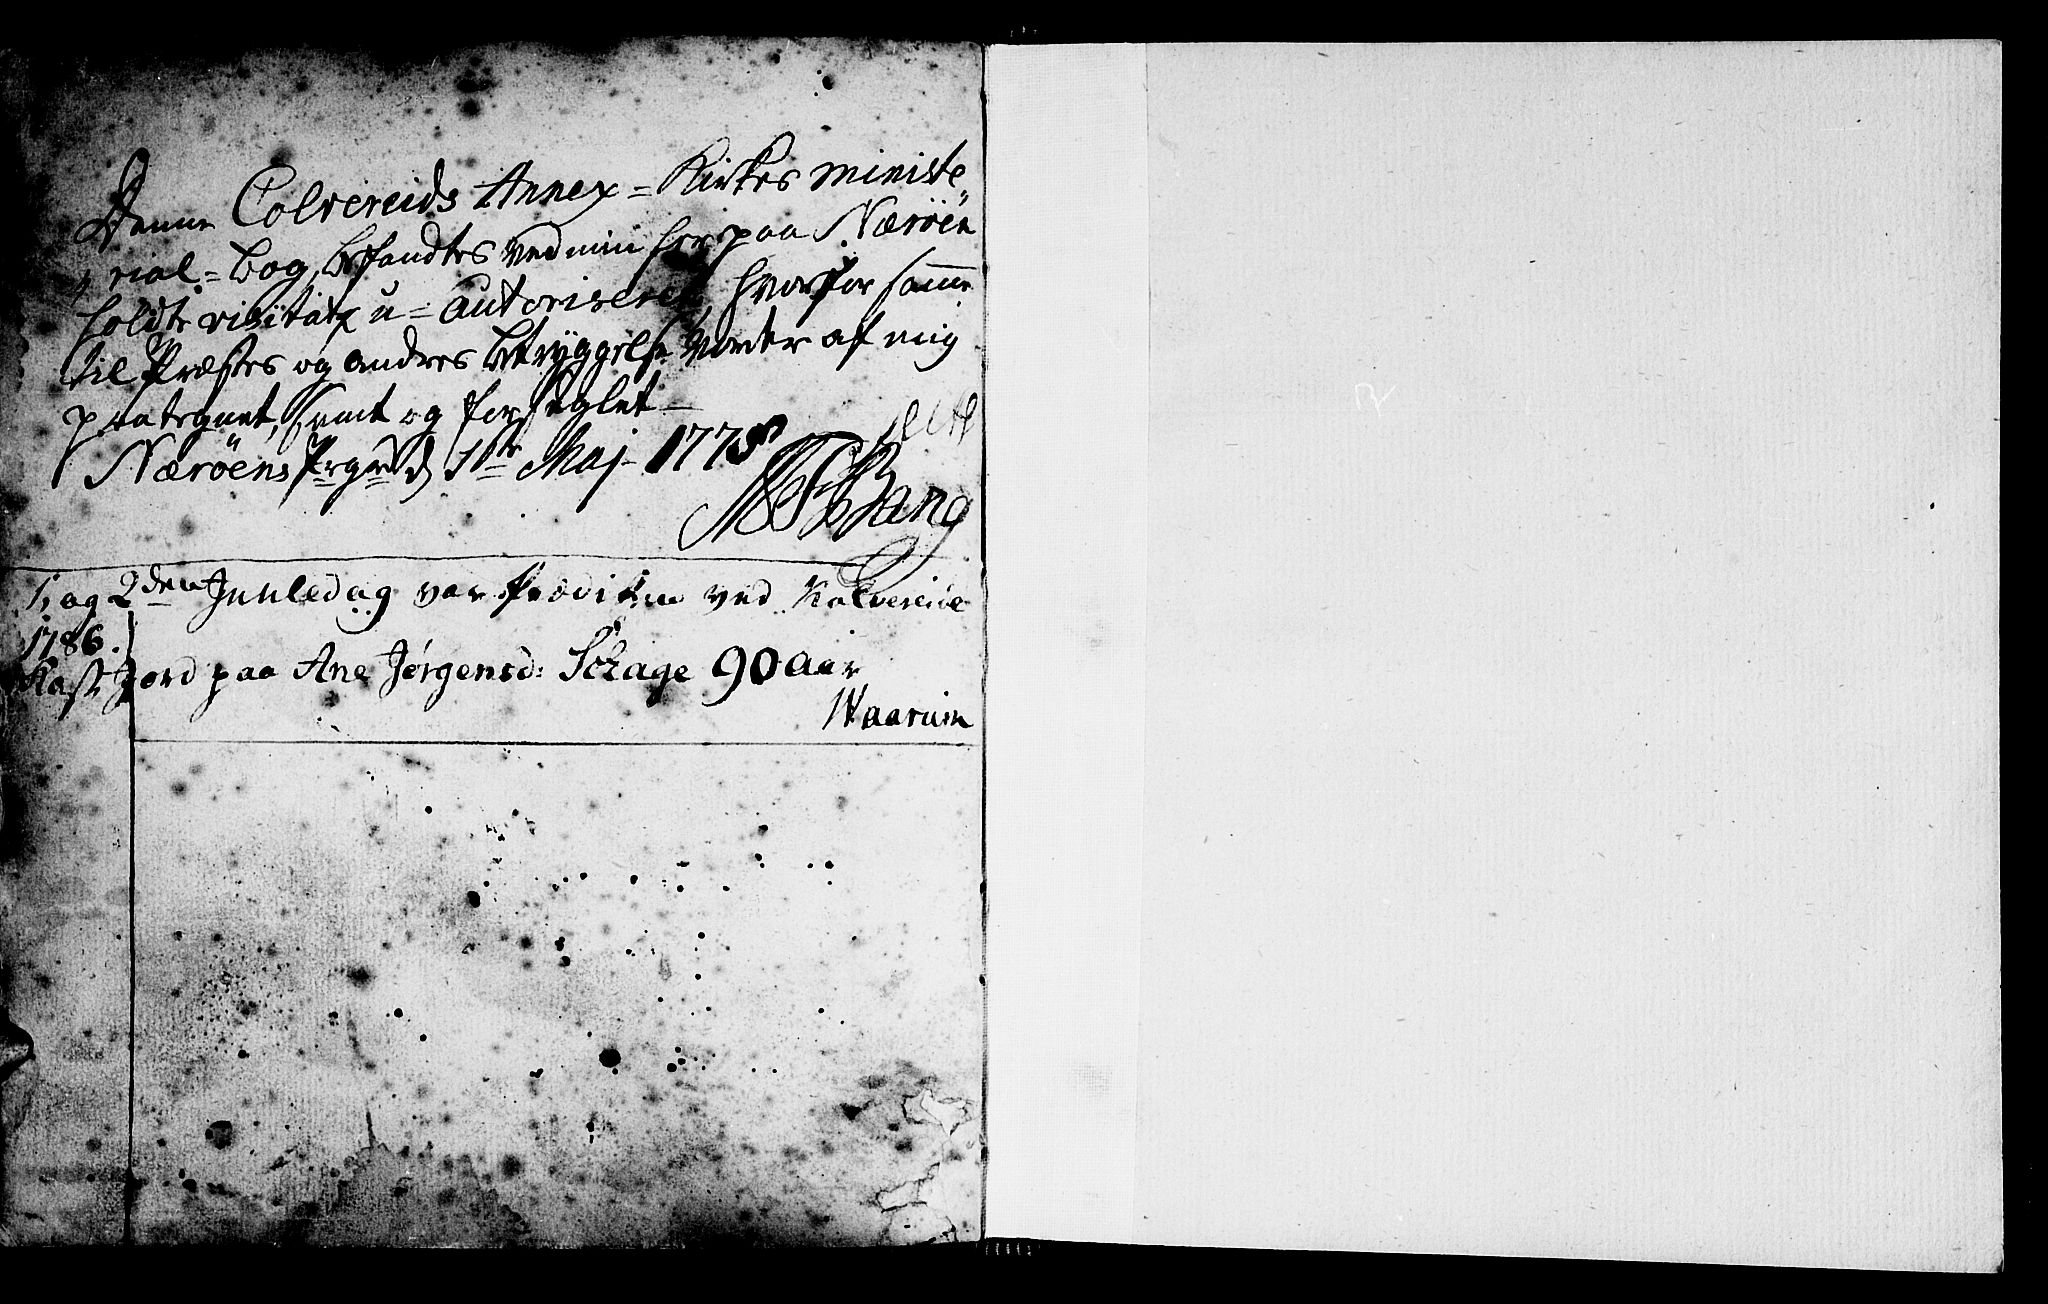 Denne Colvereids Annex = Kirkes ministe
rial = bog, befandtes ved min her paa Næröen
holdte visitatz u = autoriseret, hvorfor samme
til Præstes og andres betryggelse vorder af mig
paategnet, og forseglet
Næröens Prgrd d 1te Maj 1778
Bang
1. og 2den Juuledag var Prædiken ved Kolvereid
1786.
Kast Jord paa Ane Jørgensd: 90 Aar
Waarum